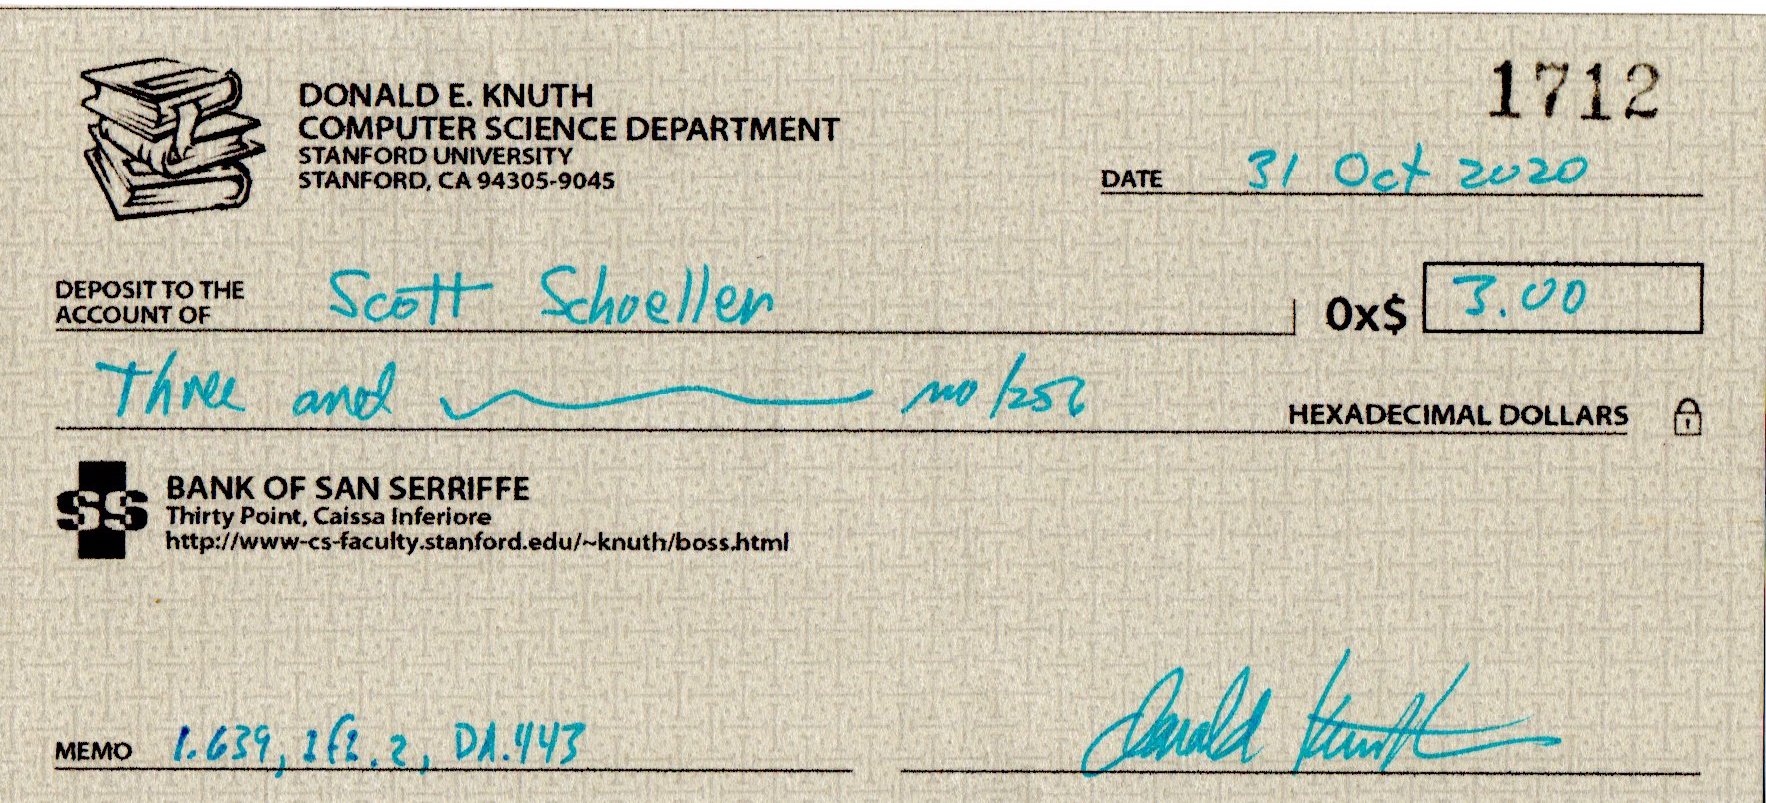 DONALD E. KNUTH
COMPUTER SCIENCE DEPARTMENT
STANFORD UNIVERSITY
STANFORD, CA 94305-9045
1712
DATE 31 Oct 2020
DEPOSIT TO THE
ACCOUNT OF Scott Schoeller 0x$ 3.00
Three and no/256 HEXADECIMAL DOLLARS
SS BANK OF SAN SERRIFFE
Thirty Point, Caissa Inferiore
http://www-cs-faculty.stanford.edu/~knuth/boss.html
MEMO 1.639, 1f1.2, DA.443
Donald Knuth